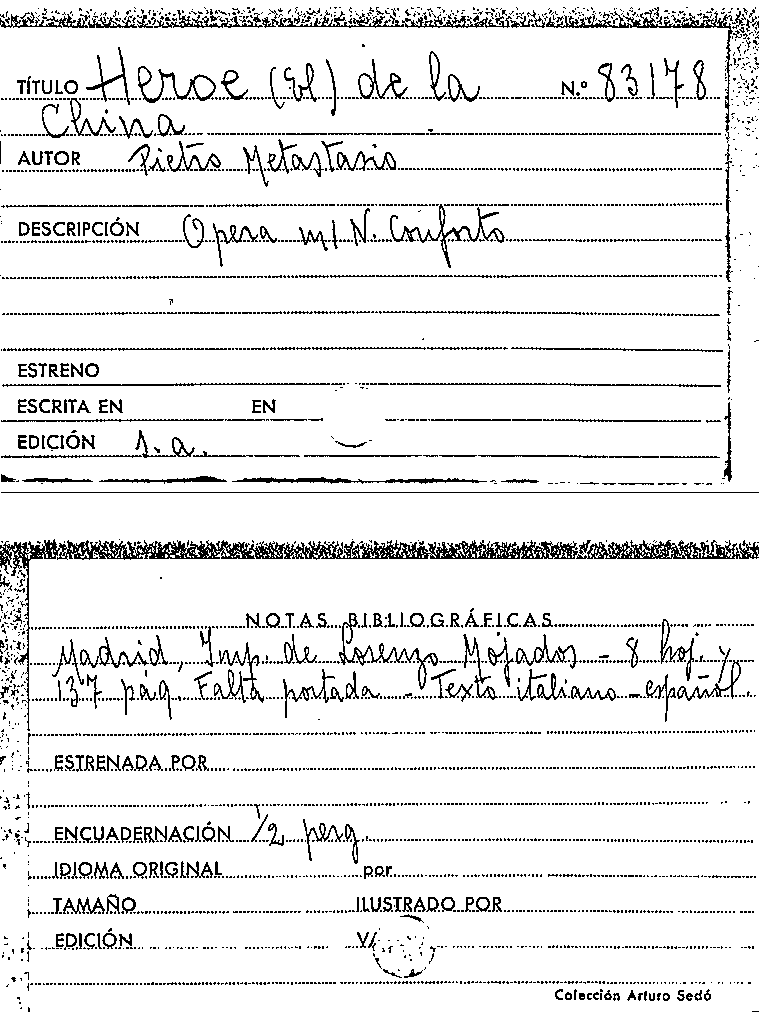 TÍTULO Heroe (El) de la N.º 83178
China
AUTOR Pietro Metastasio
DESCRIPCIÓN Opera m/ N. Conforto
ESTRENO
ESCRITA EN EN
EDICIÓN s. a.
NOTAS BIBLIOGRÁFICAS
Madrid, Imp. de Lorenzo Mojados - 8 hoj. y
137 pág. Falta portada - Texto italiano - español.
ESTRENADA POR
ENCUADERNACIÓN 1/2 perg.
IDIOMA ORIGINAL por
TAMAÑO ILUSTRADO POR
EDICIÓN
Colección Arturo Sedó